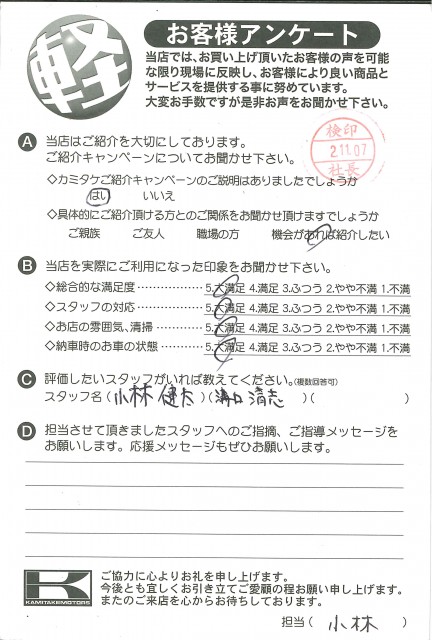 軽
お客様アンケート
当店では、お買い上げ頂いたお客様の声を可能
な限り現場に反映し、お客様により良い商品と
サービスを提供する事に努めています。
大変お手数ですが是非お声をお聞かせ下さい。
検印
2.11.07
社長
A 当店はご紹介を大切にしております。
ご紹介キャンペーンについてお聞かせ下さい。
◇カミタケご紹介キャンペーンのご説明はありましたでしょうか
はい いいえ
◇具体的にご紹介頂ける方とのご関係をお聞かせ頂けますでしょうか
ご親族 ご友人 職場の方 機会があれば紹介したい
B 当店を実際にご利用になった印象をお聞かせ下さい。
◇総合的な満足度・・・・・・・・・・・・・・ 5.大満足 4.満足 3.ふつう 2.やや不満 1.不満
◇スタッフの対応・・・・・・・・・・・・・・ 5.大満足 4.満足 3.ふつう 2.やや不満 1.不満
◇お店の雰囲気、清掃・・・・・・・・・・ 5.大満足 4.満足 3.ふつう 2.やや不満 1.不満
◇納車時のお車の状態・・・・・・・・・・ 5.大満足 4.満足 3.ふつう 2.やや不満 1.不満
C 評価したいスタッフがいれば教えてください。(複数回答可)
スタッフ名(小林 健太)(溝口 清志)( )
D 担当させて頂きましたスタッフへのご指摘、ご指導メッセージを
お願いします。応援メッセージもぜひお願いします。
K
KAMITAKEMOTORS
ご協力に心よりお礼を申し上げます。
今後とも宜しくお引き立てご愛顧の程お願い申し上げます。
またのご来店を心からお待ちしております。
担当( 小林 )